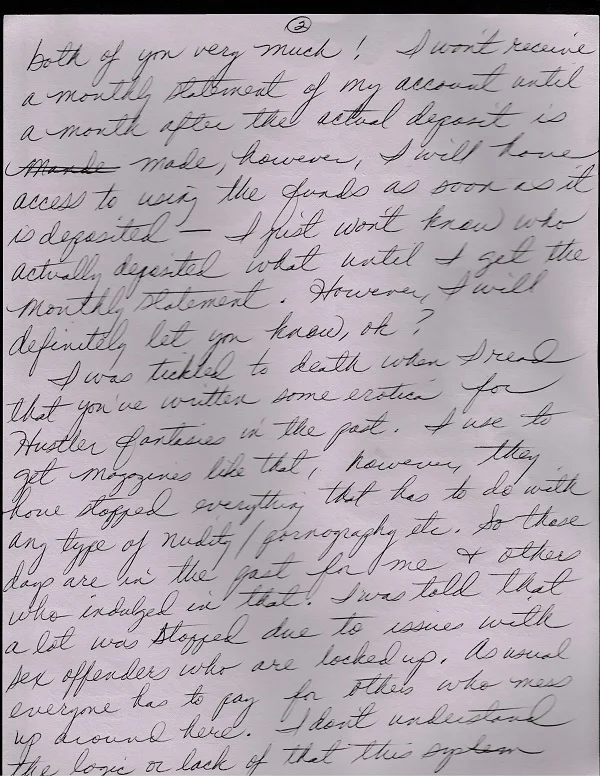 2
both of you very much! I won't receive
a monthly statement of my account until
a month after the actual deposit is
Mande made, however, I will have
access to using the funds as soon as it
is deposited — I just won't know who
actually deposited what until I get the
monthly statement. However, I will
definitely let you know, ok?
I was tickled to death when I read
that you've written some erotica for
Hustler fantasies in the past. I use to
get magazines like that, however, they
have stopped everything that has to do with
any type of nudity/pornography etc. So those
days are in the past for me & others
who indulged in that. I was told that
a lot was stopped due to issues with
sex offenders who are locked up. As usual
everyone has to pay for others who mess
up around here. I don't understand
the logic or lack of that this system